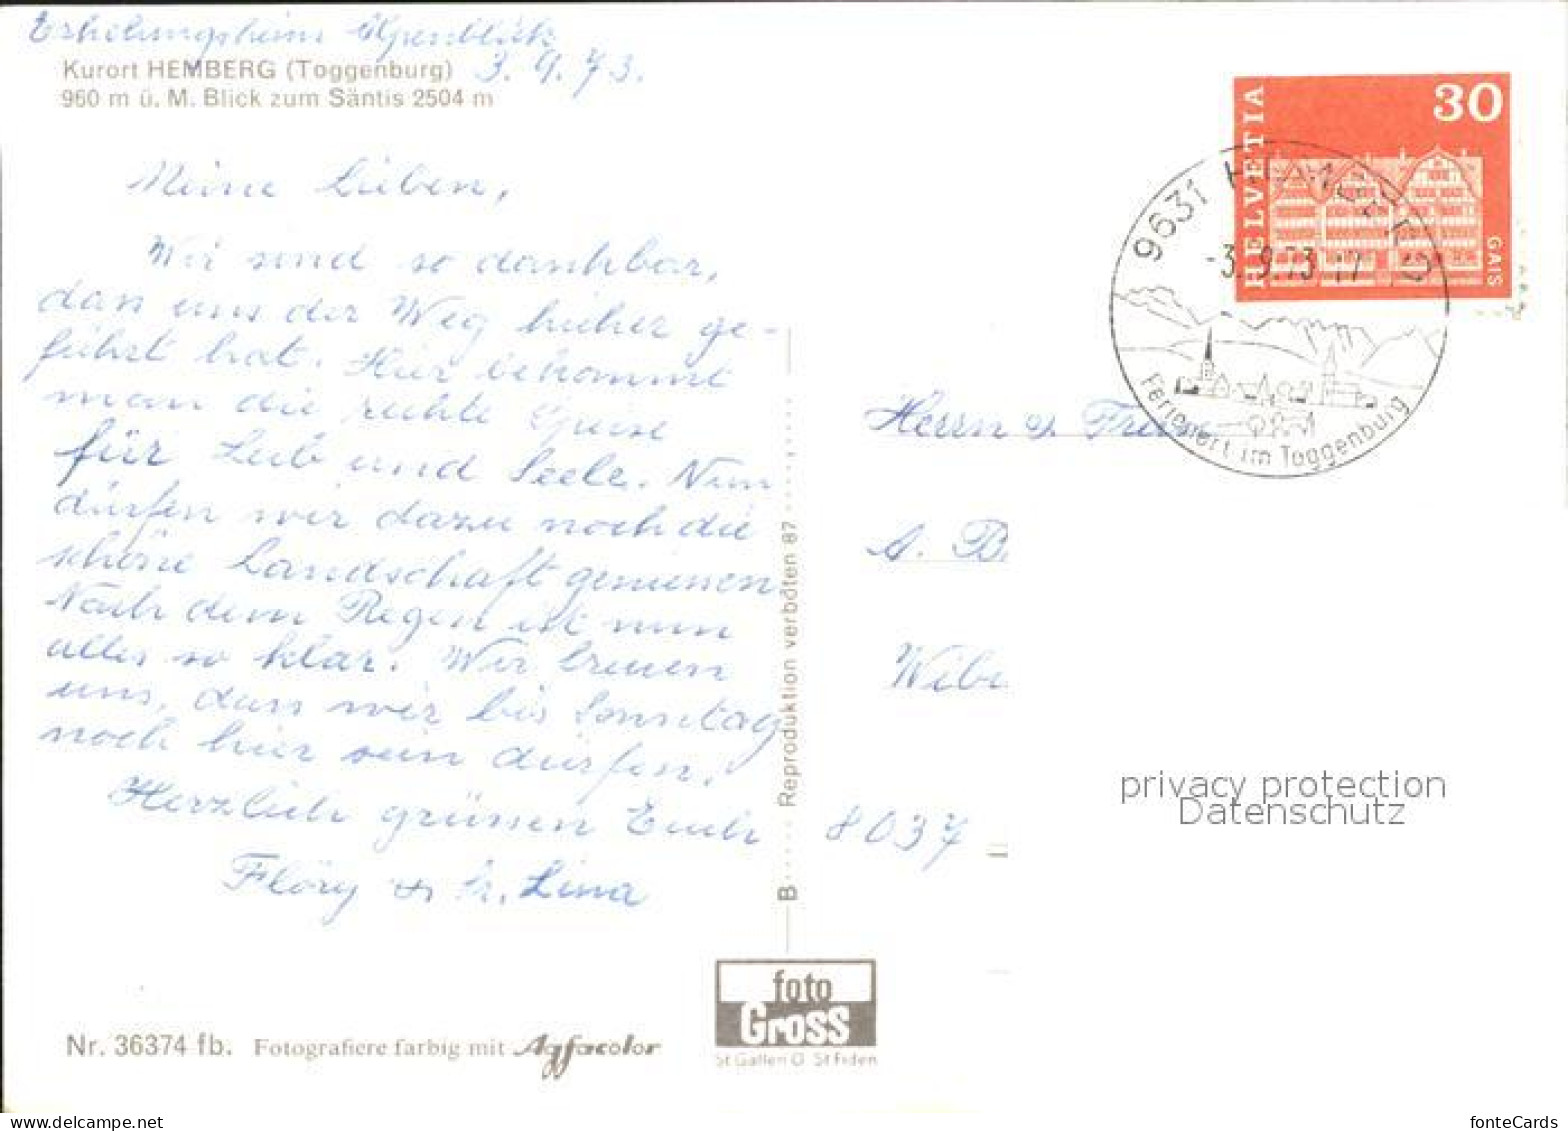 Erholungsheim Alpenblick
Kurort HEMBERG (Toggenburg) 3. 9. 73.
960 m ü. M. Blick zum Säntis 2504 m
Meine Lieben,
Wir sind so dankbar,
dass uns der Weg hieher ge-
führt hat. Hier bekommt
man die rechte Speise
für Leib und Seele. Nun
dürfen wir dazu noch die
schöne Landschaft geniessen
Nach dem Regen ist nun
alles so klar. Wir freuen
uns, dass wir bis Sonntag
noch hier sein dürfen.
Herzlich grüssen Euch
Flöry & Lina
Nr. 36374 fb. Fotografiere farbig mit Agfacolor
B Reproduktion verboten 87
foto
Gross
St Gallen O St Fiden
HELVETIA
30
GAIS
9631 HEMBERG
-3. 9. 73 17
Ferienort im Toggenburg
Herrn & Frau
A. B
Wibi
8037
privacy protection
Datenschutz
www.delcampe.net
fonteCards